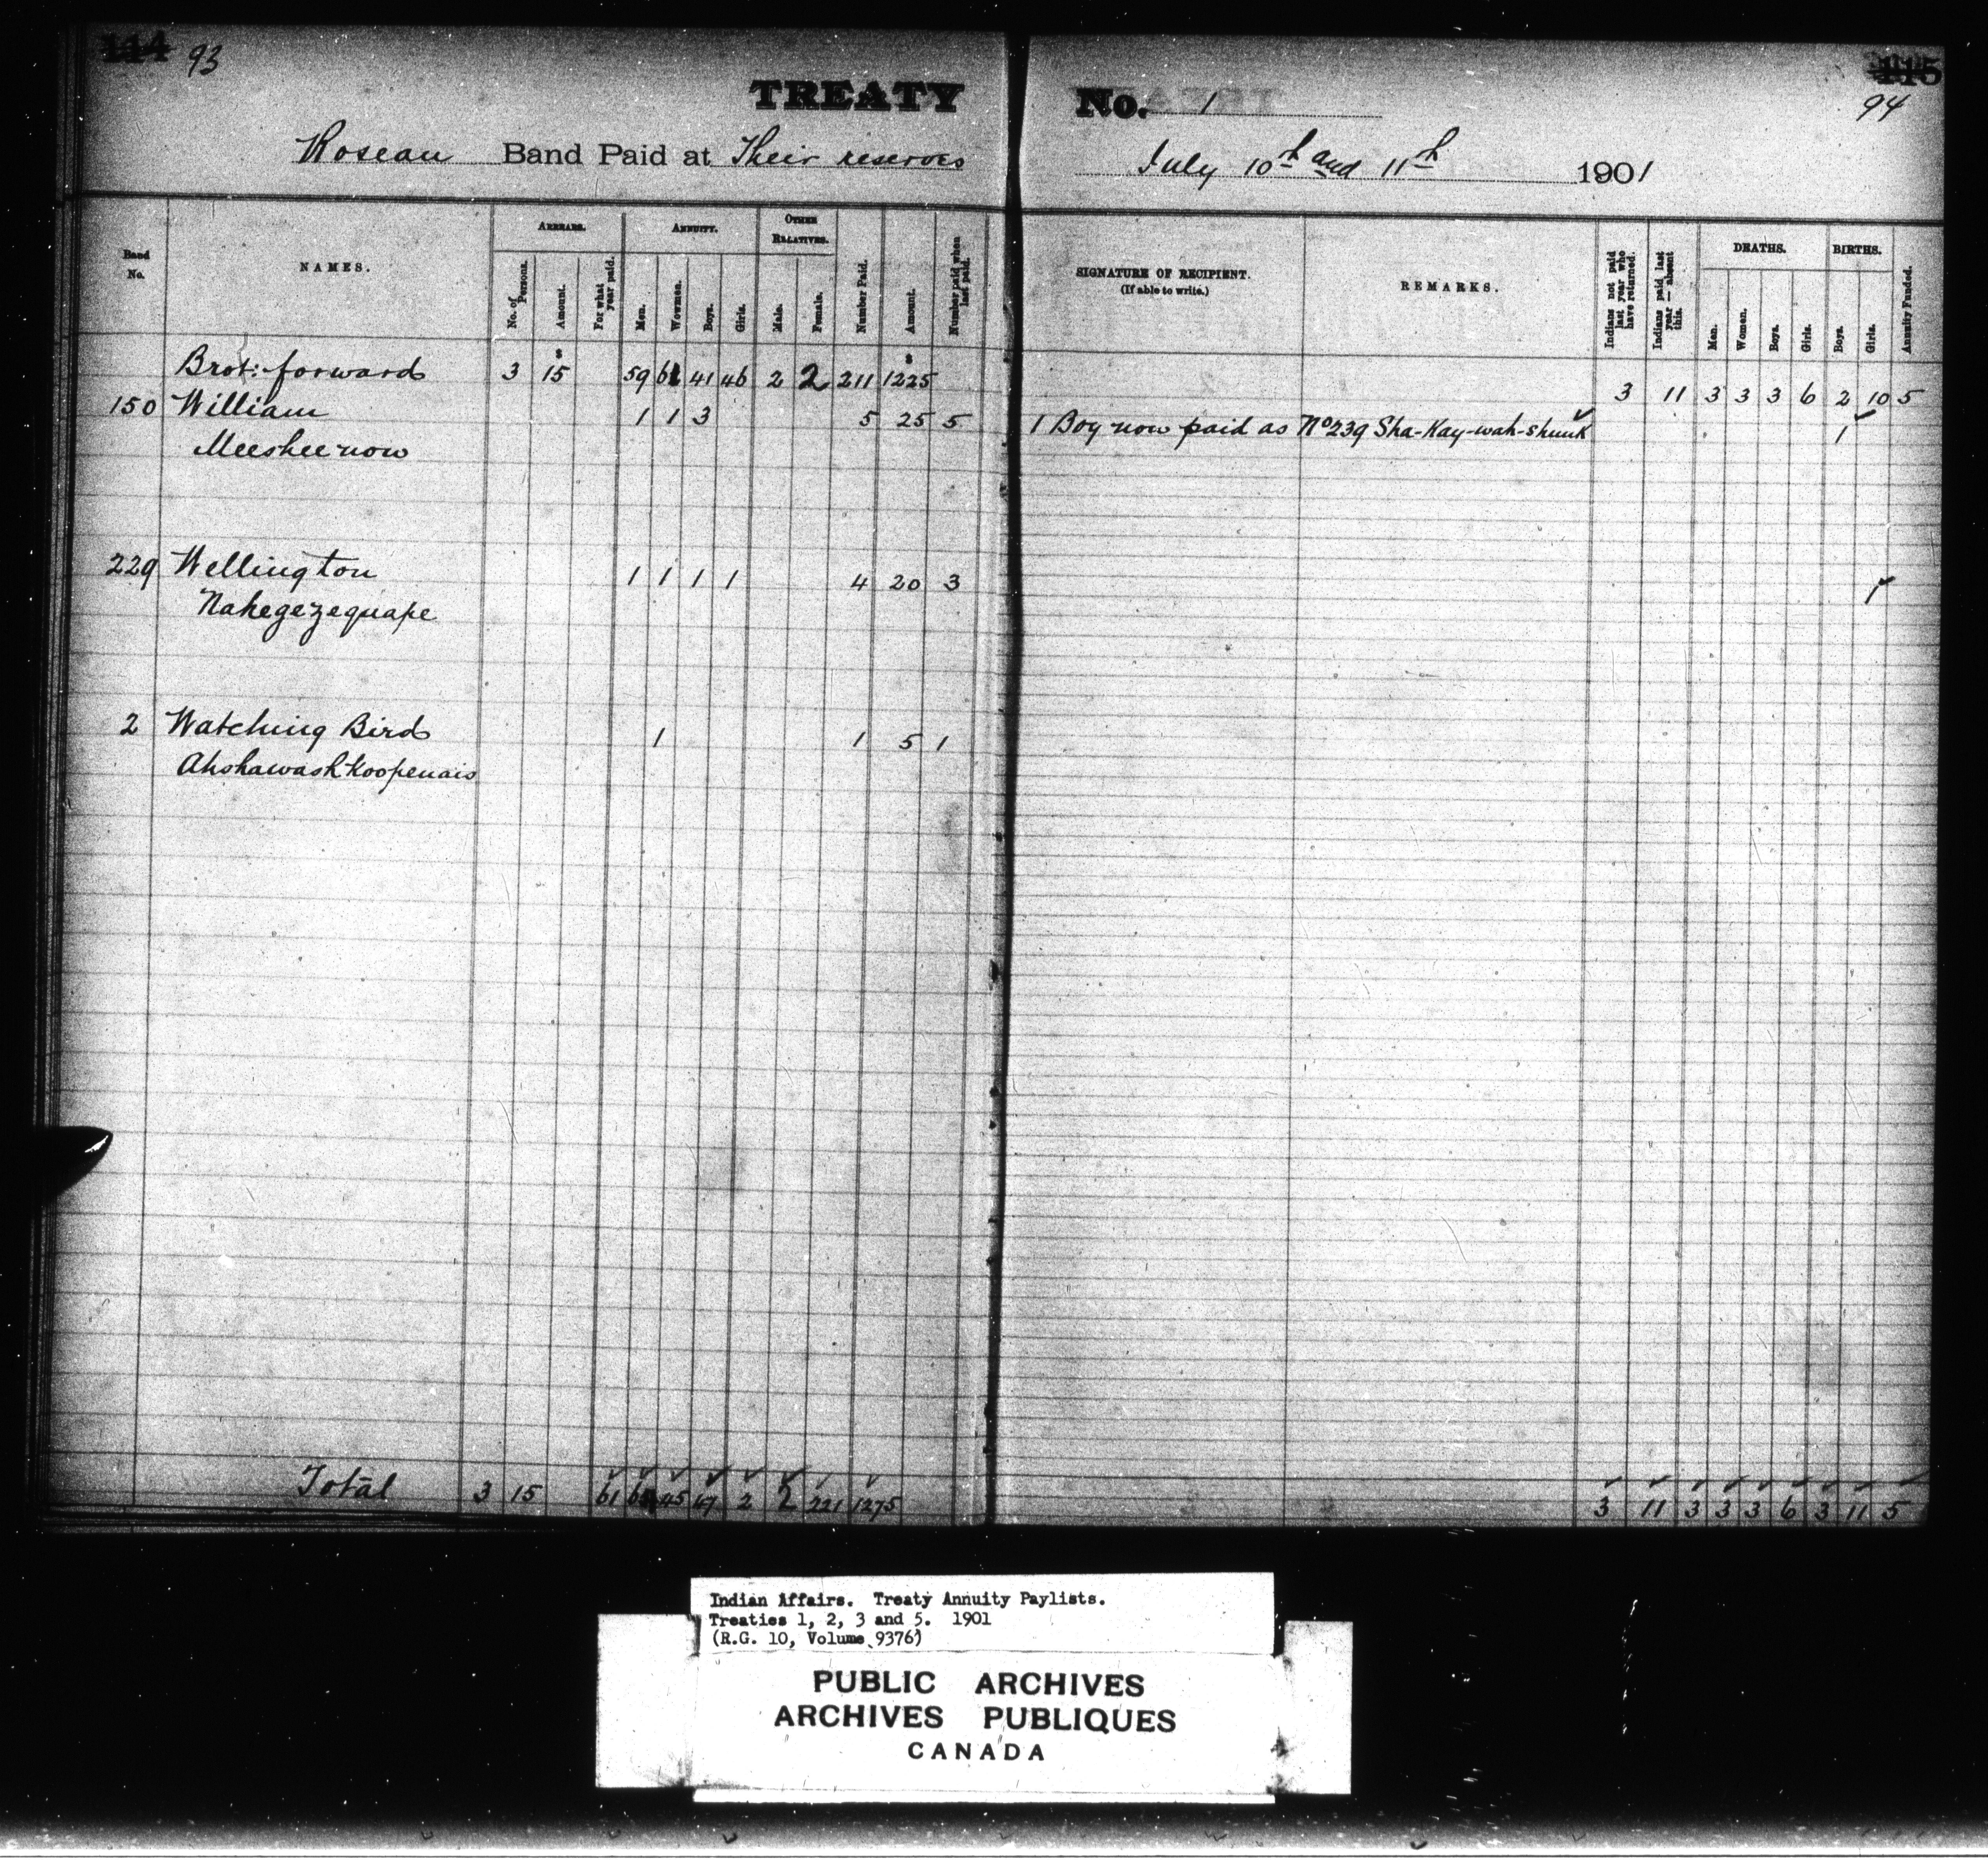 114 93
115
94
TREATY No. 1
Roseau Band Paid at Their reserves July 10th and 11th 1901
Band No.
NAMES.
ARREARS.
No. of Persons.
Amount.
For what year paid.
ANNUITY.
Men.
Women.
Boys.
Girls.
OTHER RELATIVES.
Male.
Female.
Number Paid.
Amount.
Number paid when last paid.
SIGNATURE OF RECIPIENT.
(If able to write.)
REMARKS.
Indians not paid last year who have returned.
Indians paid last year — absent this.
DEATHS.
Men.
Women.
Boys.
Girls.
BIRTHS.
Boys.
Girls.
Annuity Funded.
Brot: forward 3 15 59 61 41 46 2 2 211 1225 3 11 3 3 3 6 2 10 5
150 William 1 1 3 5 25 5 1 Boy now paid as No 239 Sha-Kay-wah-shunk 1
Meesheenow
229 Wellington 1 1 1 1 4 20 3 1
Nahegezequape
2 Watching Bird 1 1 5 1
Ahshawashkoopenais
Total 3 15 61 64 45 47 2 2 221 1275 3 11 3 3 3 6 3 11 5
Indian Affairs. Treaty Annuity Paylists.
Treaties 1, 2, 3 and 5. 1901
(R.G. 10, Volume 9376)
PUBLIC ARCHIVES
ARCHIVES PUBLIQUES
CANADA